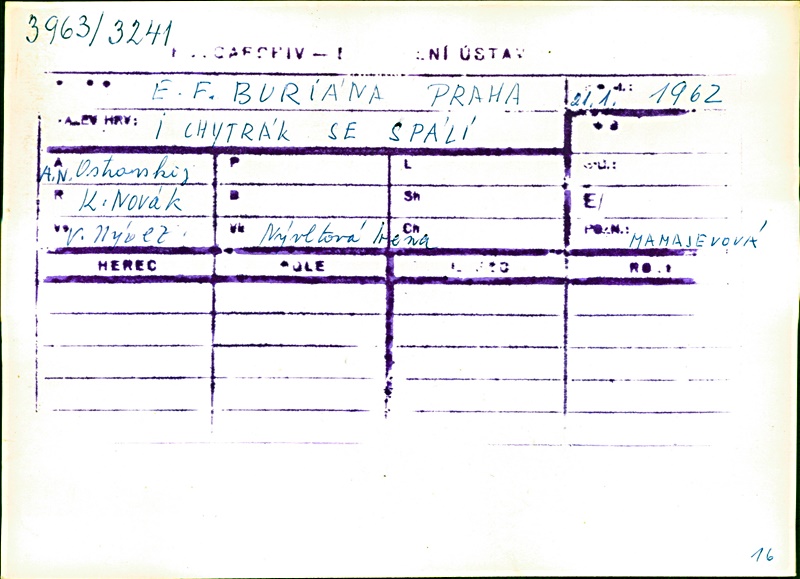 3963/3241
ENÍ ÚSTAV
E. F. BURIÁNA PRAHA 21.1. 1962
I CHYTRÁK SE SPÁLÍ
A A.N. Ostrovskij P L
R K. Novák B Sh E/
V. Nývlt Vk Nývltová Irena Ch POZN.: MAMAJEVOVÁ
HEREC ROLE
16